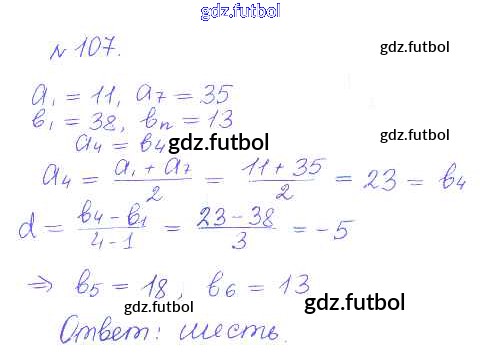 gdz.futbol
№ 107.
gdz.futbol
a₁ = 11, a₇ = 35
b₁ = 38, bₙ = 13
gdz.futbol
a₄ = b₄
gdz.futbol
a₄ = (a₁ + a₇)/2 = (11 + 35)/2 = 23 = b₄
d = (b₄ - b₁)/(4 - 1) = (23 - 38)/3 = -5
⇒ b₅ = 18, b₆ = 13
gdz.futbol
gdz.futbol
Ответ: шесть.